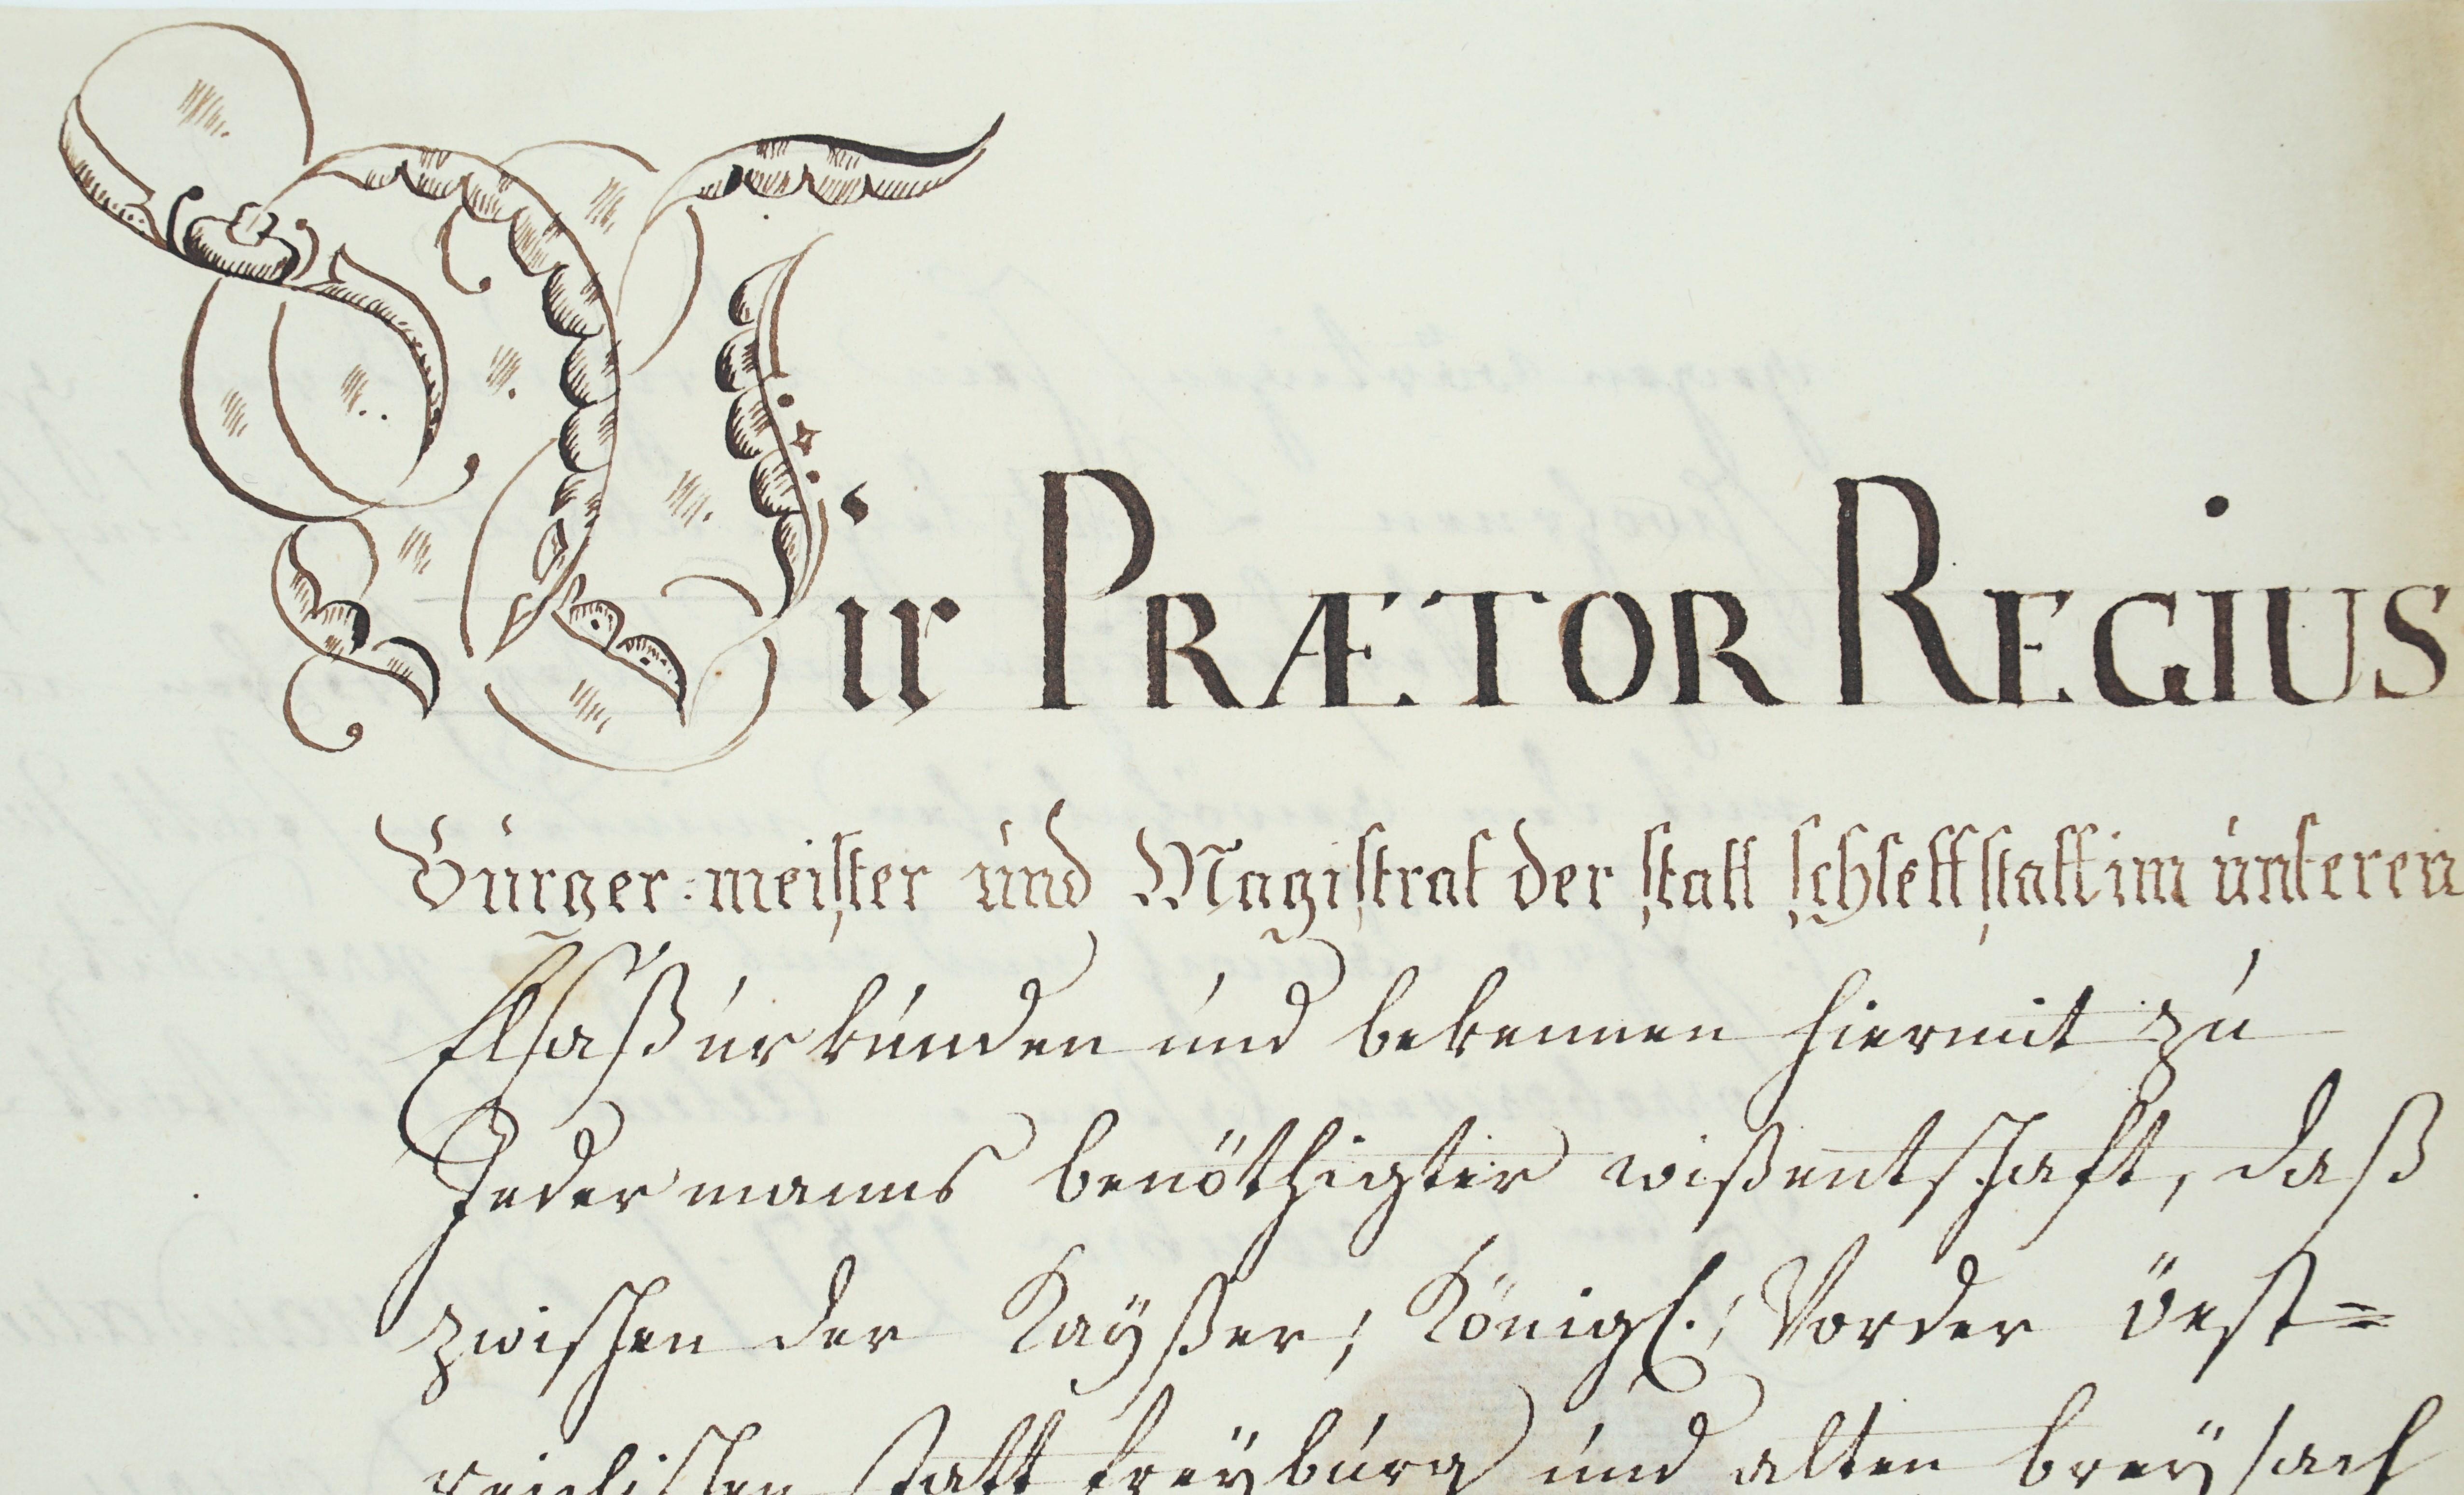 Wir PRÆTOR REGIUS
Bürger-meister und Magistrat der statt schlettstatt im unteren
Elsaß urkunden und bekennen hiermit zu
Jedermanns benöthigter wißentschaft, daß
zwischen der Kaÿßer, Königl. Vorder öest=
reichischen statt freÿburg und alten breÿsach